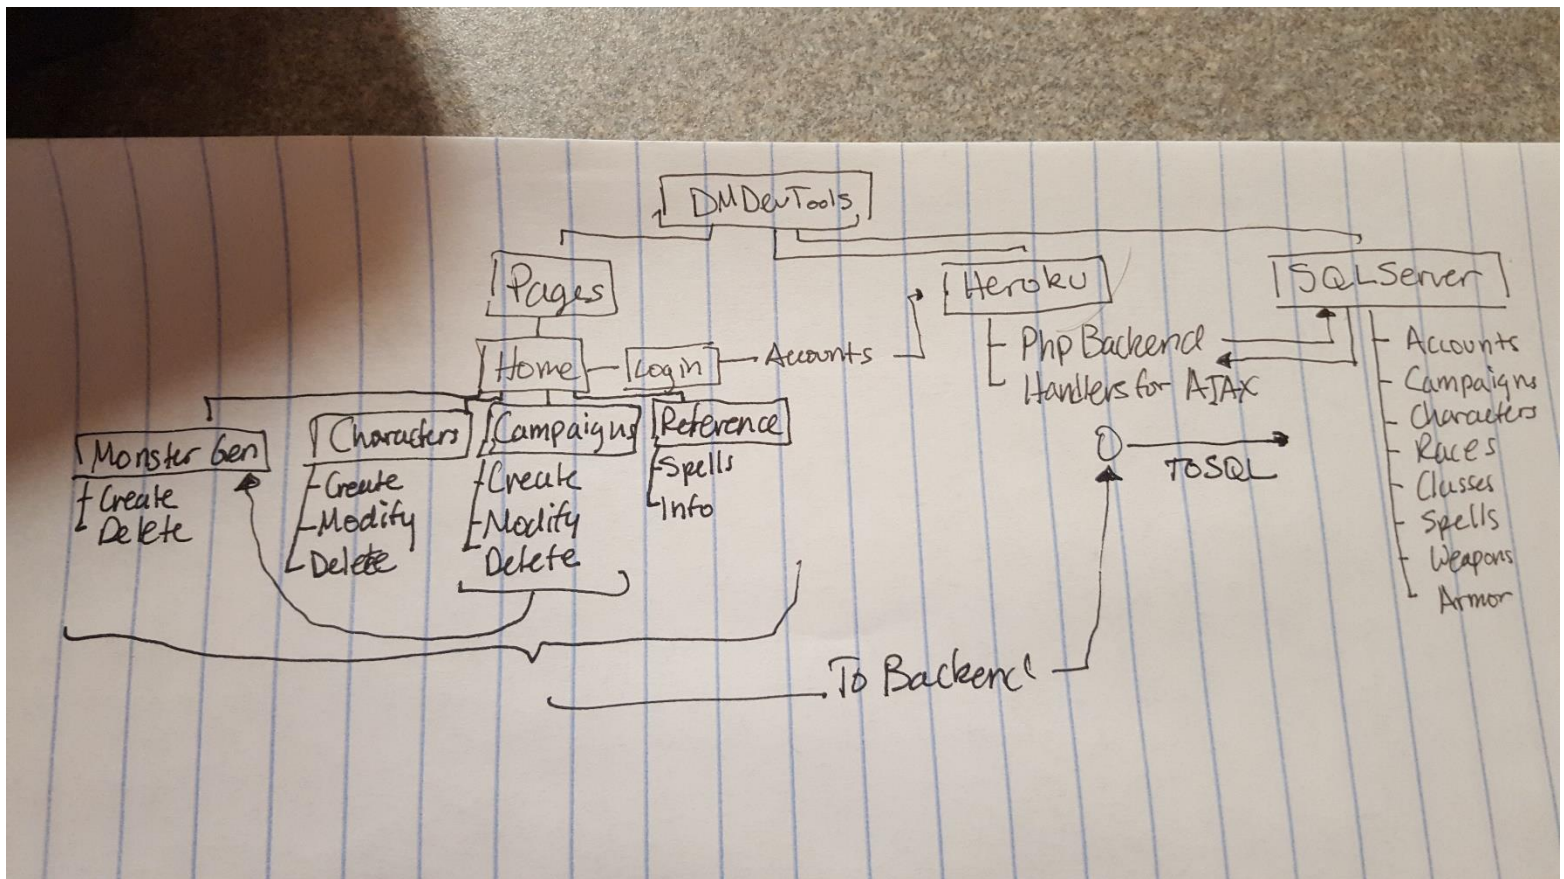 DMDevTools
Pages
Heroku
SQLServer
Home
Login
Accounts
Php Backend
Handlers for AJAX
Accounts
Campaigns
Characters
Races
Classes
Spells
Weapons
Armor
Monster Gen
Create
Delete
Characters
Create
Modify
Delete
Campaigns
Create
Modify
Delete
Reference
Spells
Info
TO SQL
To Backend